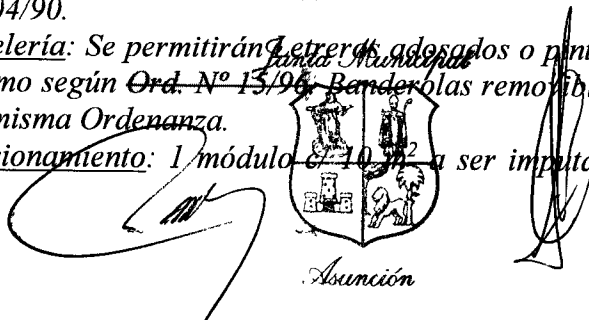 04/90.
elería: Se permitirán Letreros adosados o pint
Junta Municipal
mo según Ord. Nº 15/96, Banderolas removibl
misma Ordenanza.
cionamiento: 1 módulo c/ 10 m² a ser imputa
Asunción